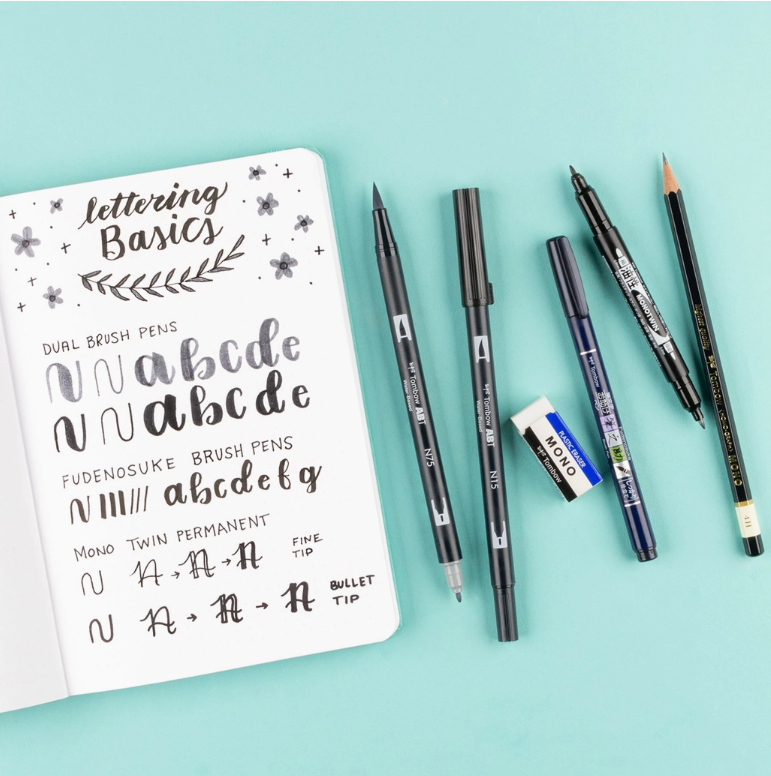 lettering
Basics
DUAL BRUSH PENS
N N abcde
N N abcde
FUDENOSUKE BRUSH PENS
N abcdefg
MONO TWIN PERMANENT
N A → A → A FINE
TIP
N A → A → A BULLET
TIP
Tombow ABT
N75
Tombow ABT
N15
PLASTIC ERASER
MONO
Tombow
油性 MONOTWIN
Tombow
MONO
4H